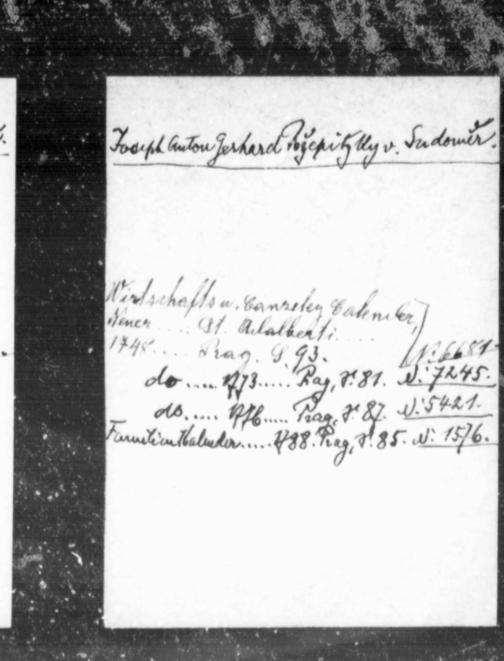 Joseph Anton Gerhard Požepitzky v. Sudoměř.
Wirtschafts u. Canzeley Calender,
Neuer .... St. Adalberti....
174 .... Prag. S 93. N: 6681-
do ..... 1773..... Prag, S. 81. N: 7245.
do. .... 1776..... Prag, S. 87. N: 5421.
Familien Kalender..... 1788. Prag, S. 85. N: 1576.